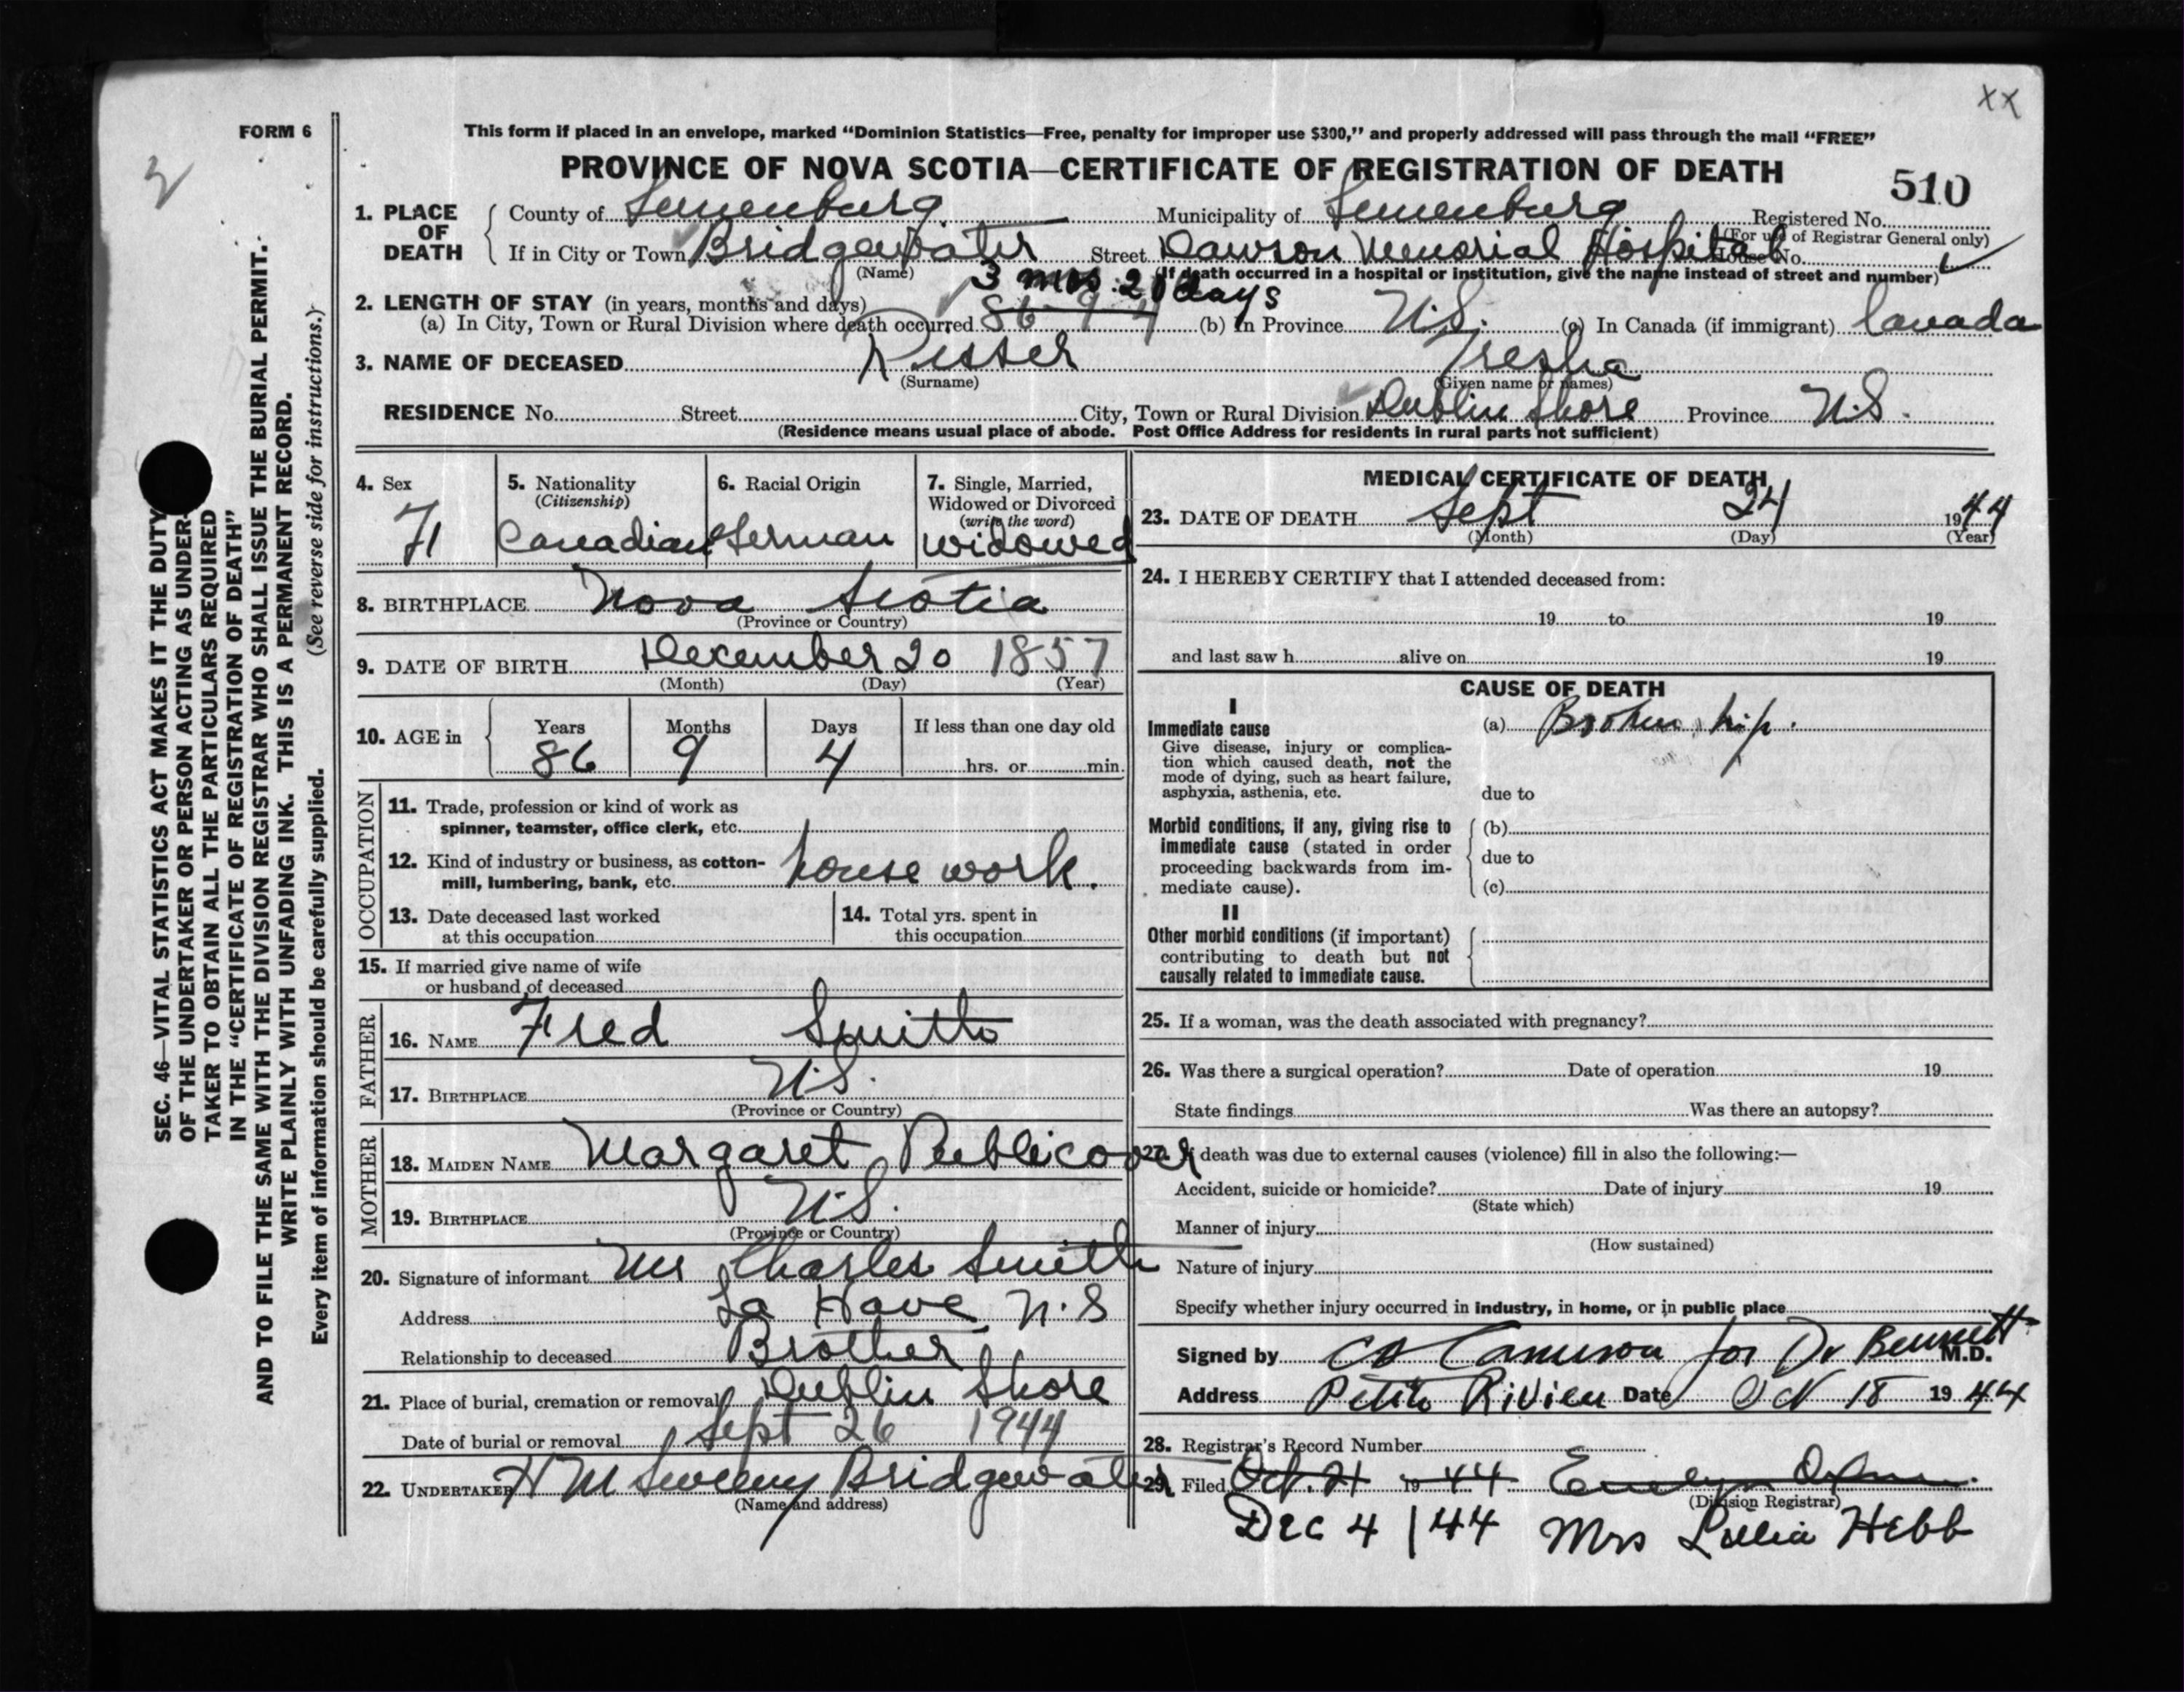 XX
FORM 6
This form if placed in an envelope, marked “Dominion Statistics—Free, penalty for improper use $300,” and properly addressed will pass through the mail “FREE”
PROVINCE OF NOVA SCOTIA—CERTIFICATE OF REGISTRATION OF DEATH
510
1. PLACE OF DEATH
County of Lunenburg Municipality of Lunenburg Registered No.
(For use of Registrar General only)
If in City or Town Bridgewater Street Dawson Memorial Hospital House No.
(Name) (If death occurred in a hospital or institution, give the name instead of street and number)
3 mos. days
2. LENGTH OF STAY (in years, months and days)
(a) In City, Town or Rural Division where death occurred 86 9 4 (b) In Province N.S. (c) In Canada (if immigrant) Canada
3. NAME OF DECEASED Risser Tresha
(Surname) (Given name or names)
RESIDENCE No. Street City, Town or Rural Division Dublin Shore Province N.S.
(Residence means usual place of abode. Post Office Address for residents in rural parts not sufficient)
4. Sex F
5. Nationality (Citizenship) Canadian
6. Racial Origin German
7. Single, Married, Widowed or Divorced (write the word) Widowed
8. BIRTHPLACE Nova Scotia
(Province or Country)
9. DATE OF BIRTH December 20 1857
(Month) (Day) (Year)
10. AGE in Years 86 Months 9 Days 4 If less than one day old hrs. or min.
OCCUPATION
11. Trade, profession or kind of work as
spinner, teamster, office clerk, etc.
12. Kind of industry or business, as cotton-
mill, lumbering, bank, etc. house work.
13. Date deceased last worked
at this occupation
14. Total yrs. spent in
this occupation
15. If married give name of wife
or husband of deceased
FATHER
16. NAME Fred Smith
17. BIRTHPLACE N.S.
(Province or Country)
MOTHER
18. MAIDEN NAME Margaret Publicover
19. BIRTHPLACE N.S.
(Province or Country)
20. Signature of informant Mr Charles Smith
Address La Have N.S
Relationship to deceased Brother
21. Place of burial, cremation or removal Dublin Shore
Date of burial or removal Sept 26 1944
22. UNDERTAKER H M Sweeny Bridgewater
(Name and address)
MEDICAL CERTIFICATE OF DEATH
23. DATE OF DEATH Sept 24 1944
(Month) (Day) (Year)
24. I HEREBY CERTIFY that I attended deceased from:
19 to 19
and last saw h alive on 19
CAUSE OF DEATH
I
Immediate cause
Give disease, injury or complica-
tion which caused death, not the
mode of dying, such as heart failure,
asphyxia, asthenia, etc.
(a) Broken hip.
due to
Morbid conditions, if any, giving rise to
immediate cause (stated in order
proceeding backwards from im-
mediate cause).
(b)
due to
(c)
II
Other morbid conditions (if important)
contributing to death but not
causally related to immediate cause.
25. If a woman, was the death associated with pregnancy?
26. Was there a surgical operation? Date of operation 19
State findings Was there an autopsy?
27. If death was due to external causes (violence) fill in also the following:—
Accident, suicide or homicide? Date of injury 19
(State which)
Manner of injury
(How sustained)
Nature of injury
Specify whether injury occurred in industry, in home, or in public place
Signed by Cameron for Dr Bennett M.D.
Address Petite Riviere Date Oct 18 1944
28. Registrar's Record Number
29. Filed Oct. 21 19 44
(Division Registrar)
Dec 4 / 44 Mrs Lillia Hebb
SEC. 46—VITAL STATISTICS ACT MAKES IT THE DUTY
OF THE UNDERTAKER OR PERSON ACTING AS UNDER-
TAKER TO OBTAIN ALL THE PARTICULARS REQUIRED
IN THE “CERTIFICATE OF REGISTRATION OF DEATH”
AND TO FILE THE SAME WITH THE DIVISION REGISTRAR WHO SHALL ISSUE THE BURIAL PERMIT.
WRITE PLAINLY WITH UNFADING INK. THIS IS A PERMANENT RECORD.
Every item of information should be carefully supplied. (See reverse side for instructions.)